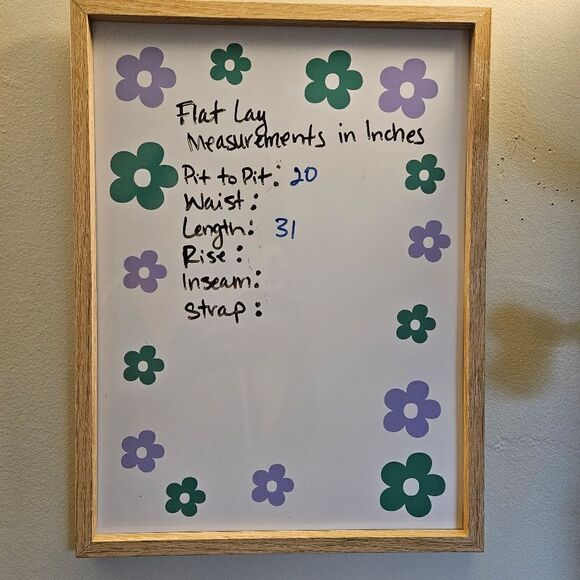 Flat Lay
Measurements in Inches
Pit to Pit: 20
Waist:
Length: 31
Rise:
Inseam:
Strap: